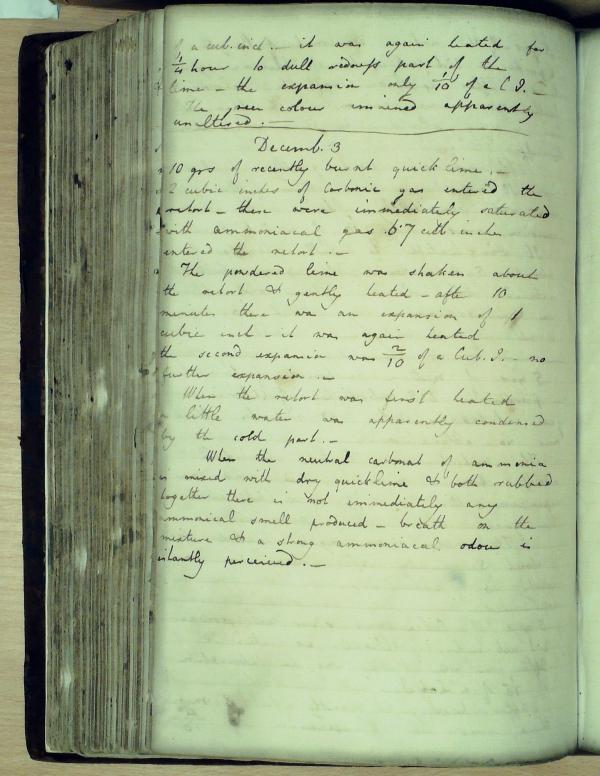 of a cub. inch. – it was again heated for
1/4 hour to dull redness part of the
time – the expansion only 1/10 of a C I. –
The green colour remained apparently
unaltered. –
Decemb. 3
10 grs of recently burnt quick lime. –
2 cubic inches of Carbonic gas entered the
retort – these were immediately saturated
with ammoniacal gas 6.7 cub inches
entered the retort. –
The powdered lime was shaken about
the retort & gently heated – after 10
minutes there was an expansion of 1
cubic inch – it was again heated
the second expansion was 2/10 of a Cub. I. – no
further expansion. –
When the retort was first heated
a little water was apparently condensed
by the cold part. –
When the neutral carbonat of ammonia
is mixed with dry quicklime & both rubbed
together there is not immediately any
ammonical smell produced – breath on the
mixture & a strong ammoniacal odour is
instantly perceived. –